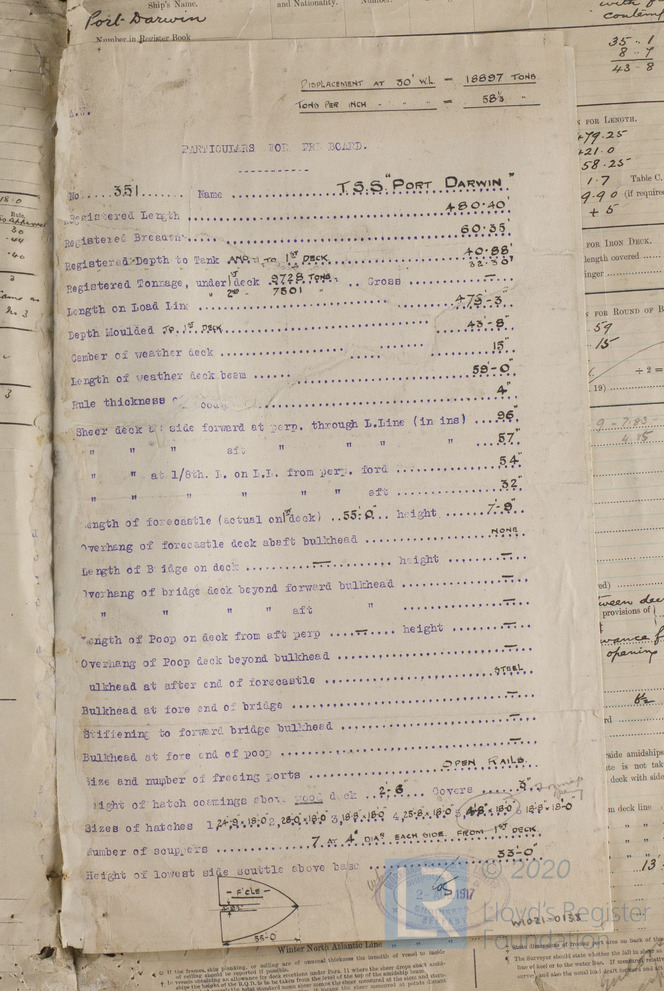 Ship's Name.
and Nationality.
Number.
Port Darwin
Number in Register Book
contemp
35 .. 1
8 .. 7
43 - 8
DISPLACEMENT AT 30' W.L. = 18897 TONS.
TONS PER INCH - " " - = 58.3 "
PARTICULARS FOR FREEBOARD.
No .... 351 ...... Name .......... T.S.S. "PORT DARWIN"
Registered Length .......... 480.40'
Registered Breadth .......... 60.35'
Registered Depth to Tank AND TO 1ST DECK .......... 40.88'
Registered Tonnage, under 1st deck 9728 TONS .. Gross ...... —
" 2nd - 7501 "
Length on Load Line .......... 475-3"
Depth Moulded TO 1ST DECK .......... 43'-8"
Camber of weather deck .......... 15"
Length of weather deck beam .......... 59'-0"
Rule thickness .......... 4"
Sheer deck at side forward at perp. through L.Line (in ins) ..... 96
" " " aft " " " " ..... 57"
" " at 1/8th. L. on L.L. from perp. ford ..... 54"
" " " " " aft ..... 32"
Length of forecastle (actual on 1st deck) ..55'-0".. height ....... 7'-9"
Overhang of forecastle deck abaft bulkhead .......... NONE
Length of Bridge on deck .......—....... height ....... —
Overhang of bridge deck beyond forward bulkhead .......... —
" " " " aft " .......... —
Length of Poop on deck from aft perp ....—.... height ....... —
Overhang of Poop deck beyond bulkhead .......... —
ulkhead at after end of forecastle .......... STEEL
Bulkhead at fore end of bridge .......... —
Stiffening to forward bridge bulkhead .......... —
Bulkhead at fore end of poop .......... —
Size and number of freeing ports .......... OPEN RAILS
Height of hatch coamings above wood deck .... 2'-6" .... Covers .... 3"
Sizes of hatches
Number of scuppers .......... 7 AT 4" DIAR EACH SIDE FROM 1ST DECK
Height of lowest side scuttle above base .......... 33'-0"
F'CLE
55-0
1917
© 2020
Lloyd's Register
Foundation
W1021-0133
Winter North Atlantic Line
FOR LENGTH.
479.25
421.0
58.25
1.7 Table C.
9.90 (if required
+ 5
FOR IRON DECK.
length covered
FOR ROUND OF B
59
15
÷ 2 =
19)
provisions of
opening
side amidships
deck with side
deck line
13